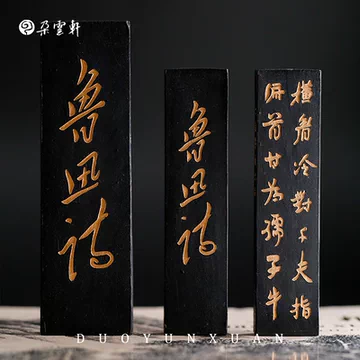 朵雲軒
魯迅詩
魯迅詩
橫眉冷對千夫指
俯首甘為孺子牛
DUOYUNXUAN